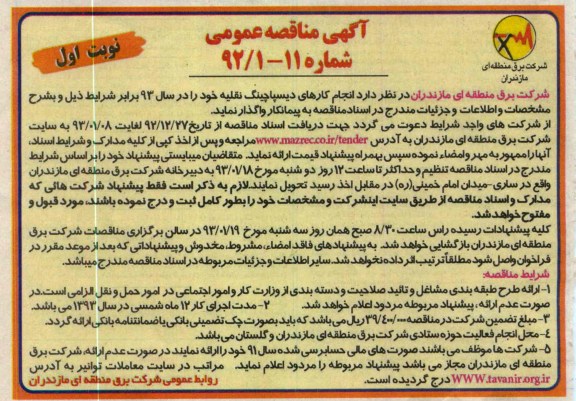 آگهی مناقصه عمومی
شماره ۱۱-۹۲/۱
نوبت اول
شرکت برق منطقه‌ای
مازندران
شرکت برق منطقه ای مازندران در نظر دارد انجام کارهای دیسپاچینگ نقلیه خود را در سال ۹۳ برابر شرایط ذیل و بشرح
مشخصات و اطلاعات و جزئیات مندرج در اسناد مناقصه به پیمانکار واگذار نماید.
از شرکت های واجد شرایط دعوت می گردد جهت دریافت اسناد مناقصه از تاریخ ۹۲/۱۲/۲۷ لغایت ۹۳/۰۱/۰۸ به سایت
شرکت برق منطقه ای مازندران به آدرس www.mazrec.co.ir/tender مراجعه و پس از اخذ کپی از کلیه مدارک و شرایط اسناد،
آنها را ممهور به مهر و امضاء نموده سپس بهمراه پیشنهاد قیمت ارائه نماید. متقاضیان میبایستی پیشنهاد خود را بر اساس شرایط
مندرج در اسناد مناقصه تنظیم و حداکثر تا ساعت ۱۲ روز دو شنبه مورخ ۹۳/۰۱/۱۸ به دبیرخانه شرکت برق منطقه ای مازندران
واقع در ساری-میدان امام خمینی(ره) در مقابل اخذ رسید تحویل نمایند.لازم به ذکر است فقط پیشنهاد شرکت هائی که
مدارک و اسناد مناقصه از طریق سایت اینترکت و مشخصات خود را بطور کامل ثبت و درج نموده باشند، مورد قبول و
مفتوح خواهد شد.
کلیه پیشنهادات رسیده راس ساعت ۸/۳۰ صبح همان روز سه شنبه مورخ ۹۳/۰۱/۱۹ در سالن برگزاری مناقصات شرکت برق
منطقه ای مازندران بازگشایی خواهد شد. به پیشنهادهای فاقد امضاء، مشروط، مخدوش و پیشنهاداتی که بعد از موعد مقرر در
فراخوان واصل شود مطلقاً ترتیب اثر داده نخواهد شد. سایر اطلاعات و جزئیات مربوطه در اسناد مناقصه مندرج میباشد.
شرایط مناقصه:
۱- ارائه طرح طبقه بندی مشاغل و تائید صلاحیت و دسته بندی از وزارت کار و امور اجتماعی در امور حمل و نقل الزامی است.در
صورت عدم ارائه، پیشنهاد مربوطه مردود اعلام خواهد شد. ۲- مدت اجرای کار ۱۲ ماه شمسی در سال ۱۳۹۳ می باشد.
۳- مبلغ تضمین شرکت در مناقصه ۳۹/۴۰۰/۰۰۰ ریال می باشد که باید بصورت چک تضمینی بانکی یا ضمانتنامه بانکی ارائه گردد.
۴- محل انجام فعالیت حوزه ستادی شرکت برق منطقه ای مازندران و گلستان می باشد.
۵- شرکت ها موظف می باشند صورت های مالی حسابرسی شده سال ۹۱ خود را ارائه نمایند در صورت عدم ارائه، شرکت برق
منطقه ای مازندران مجاز می باشد پیشنهاد مربوطه را مردود اعلام نماید. مراتب در سایت معاملات توانیر به آدرس
WWW.tavanir.org.ir درج گردیده است. روابط عمومی شرکت برق منطقه ای مازندران